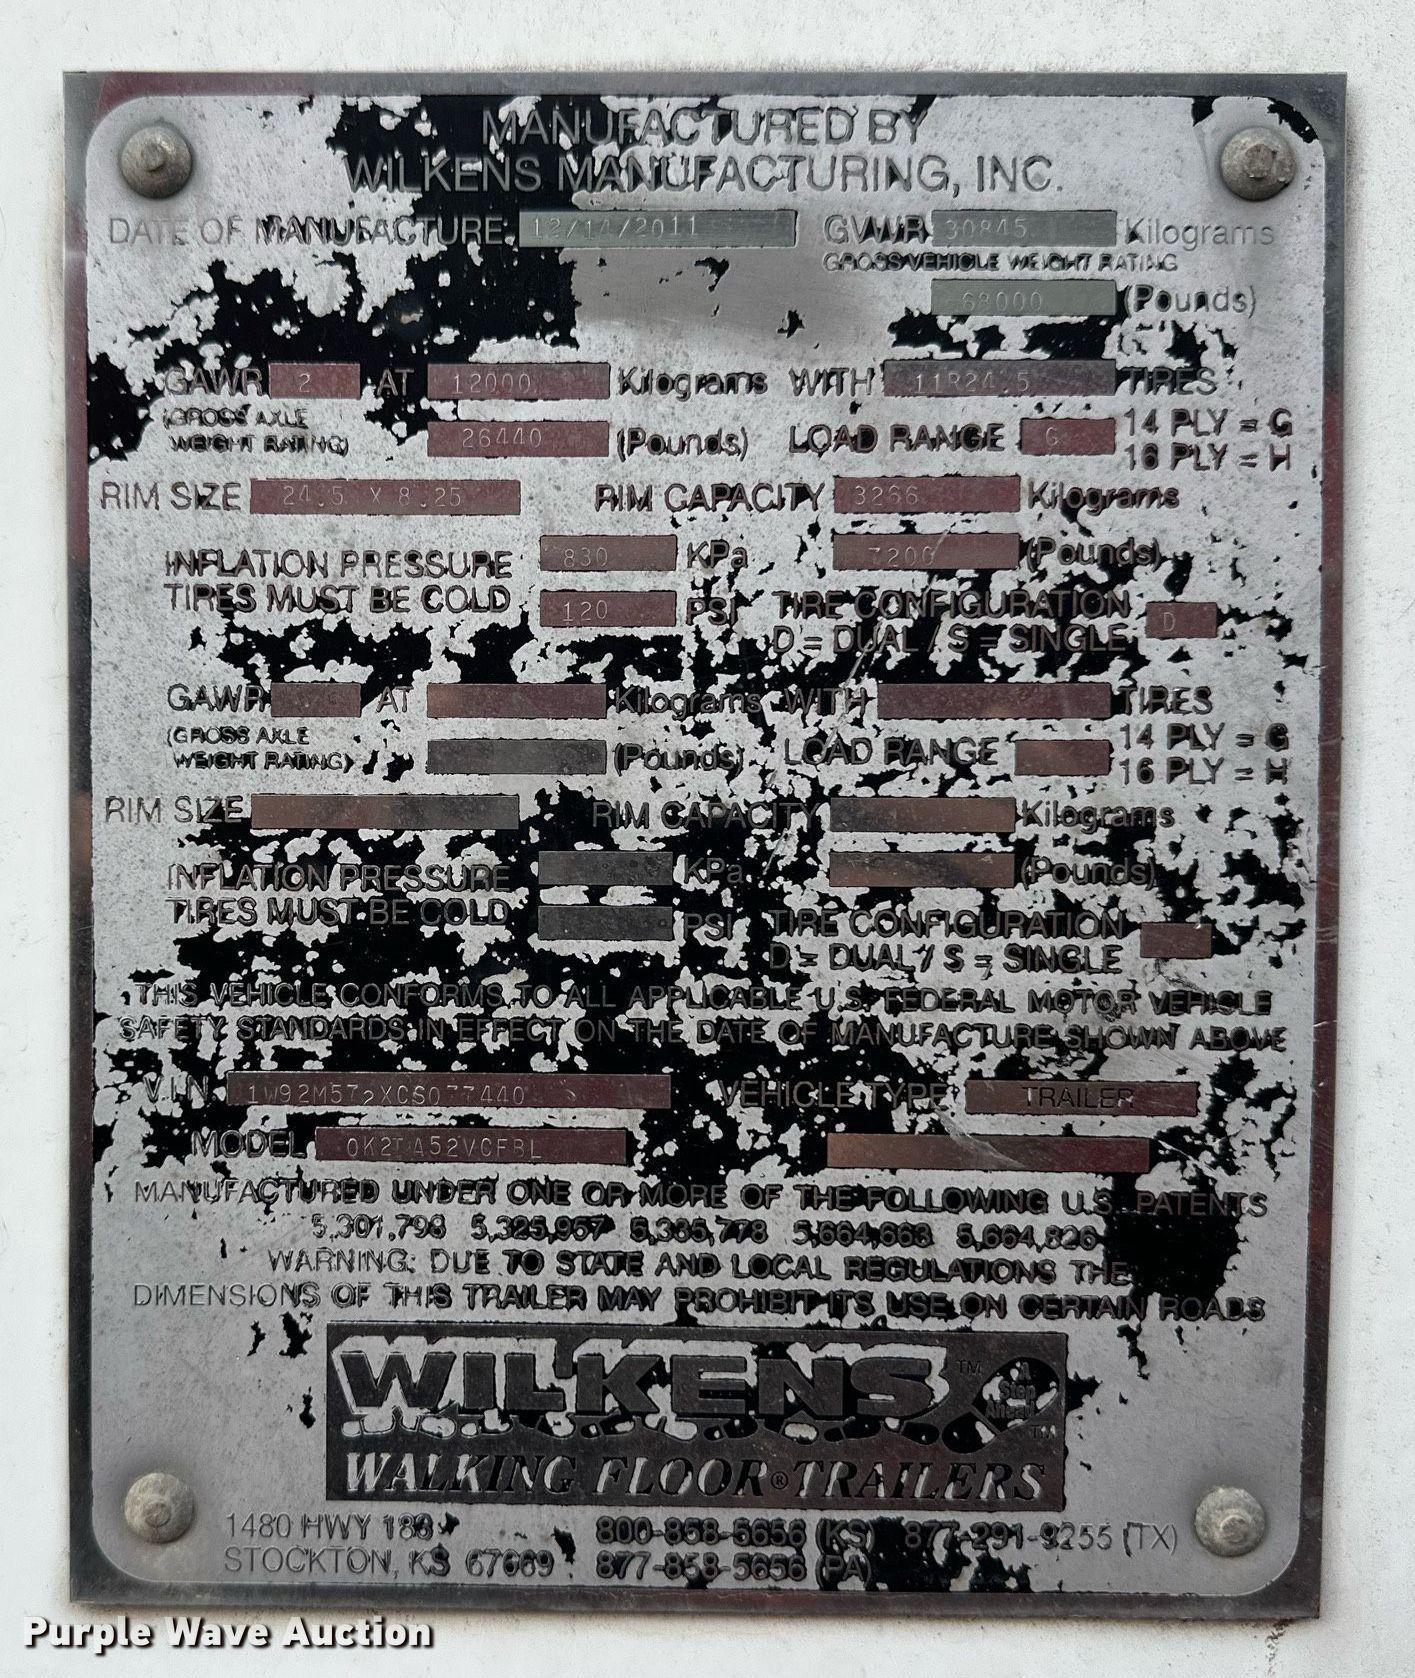 MANUFACTURED BY
WILKENS MANUFACTURING, INC.
DATE OF MANUFACTURE 12/14/2011 GVWR 30845 Kilograms
GROSS VEHICLE WEIGHT RATING
68000 (Pounds)
GAWR 2 AT 12000 Kilograms WITH 11R24.5 TIRES
(GROSS AXLE WEIGHT RATING) 26440 (Pounds) LOAD RANGE G 14 PLY = G
16 PLY = H
RIM SIZE 24.5 X 8.25 RIM CAPACITY 3266 Kilograms
INFLATION PRESSURE 830 KPa 7200 (Pounds)
TIRES MUST BE COLD 120 PSI TIRE CONFIGURATION D
D = DUAL / S = SINGLE
GAWR AT Kilograms WITH TIRES
(GROSS AXLE WEIGHT RATING) (Pounds) LOAD RANGE 14 PLY = G
16 PLY = H
RIM SIZE RIM CAPACITY Kilograms
INFLATION PRESSURE KPa (Pounds)
TIRES MUST BE COLD PSI TIRE CONFIGURATION
D = DUAL / S = SINGLE
THIS VEHICLE CONFORMS TO ALL APPLICABLE U.S. FEDERAL MOTOR VEHICLE
SAFETY STANDARDS IN EFFECT ON THE DATE OF MANUFACTURE SHOWN ABOVE
V.I.N. 1W92M572XCS077440 VEHICLE TYPE TRAILER
MODEL
MANUFACTURED UNDER ONE OR MORE OF THE FOLLOWING U.S. PATENTS
5,301,798 5,325,957 5,335,778 5,664,663 5,664,826
WARNING: DUE TO STATE AND LOCAL REGULATIONS THE
DIMENSIONS OF THIS TRAILER MAY PROHIBIT ITS USE ON CERTAIN ROADS
WILKENS ™ A Step Ahead ™
WALKING FLOOR® TRAILERS
1480 HWY 183 800-858-5656 (KS) 877-291-9255 (TX)
STOCKTON, KS 67669 877-858-5656 (PA)
Purple Wave Auction